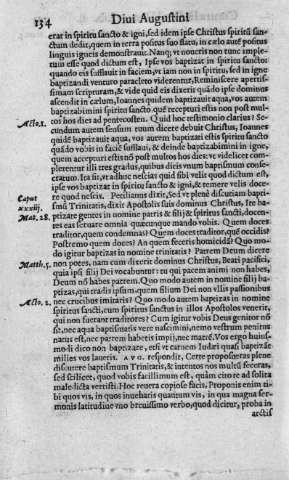 134
Diui Augustini
erat in spiritu sancto & igni, sed idem ipse Christus spiritū san-
ctum dedit, quem in terra positus suo flatu, in cælo autē positus
linguis igneis demonstrauit. Nanq; ve noueris non tunc imple-
tum esse quod dictum est, Ipse vos baptizat in spiritu sancto:
quando eis sufflauit in faciem, vt iam non in spiritu, sed in igne
baptizandi ventura paracleto viderentur, Reminiscere apertis-
simam scripturam, & vide quid eis dixerit quādo ipse dominus
ascendit in cælum, Ioannes quidem baptizauit aqua, vos autem
baptizabimini spiritu sancto quē recepturi estis non post mul-
Acto.1. tos hos dies ad pentecosten. Quid hoc testimonio clarius? Se-
cundum autem sensum tuum dicere debuit Christus, Ioannes
quidē baptizauit aqua, vos autem baptizati estis spiritu sancto
quādo vobis in facié sufflaui, & deinde baptizabimini in igne,
quem accepturi estis nō post multos hos dies: ve videlicet com-
plerentur illi tres gradus, quibus dicis vnum baptismum conse-
cratum. Ita fit, vt adhuc nescias quid sibi velit quod dictum est,
ipse vos baptizat in spiritu sancto & igni, & temere velis doce-
Caput re quod nescis. Petilianus dixit, Sed ve plenè discutiam bapti-
xxxiij. smū Trinitatis, dixit Apostolis suis dominus Christus, Ite ba-
Mat. 28. ptizate gentes in nomine patris & filij & spiritus sancti, docen-
tes eas seruare omnia quæcunque mando vobis. Quem doces
traditor, quem condemnas? Quem doces traditor, quē occidis?
Postremo quem doces? An quem feceris homicidā? Quo mo-
do igitur baptizas in nomine trinitatis? Patrem Deum dicere
Matth.5. non potes, nam cum dixerit dominus Christus, Beati pacifici,
quia ipsi filij Dei vocabuntur: tu qui pacem animi non habes,
Deum nō habes patrem. Quo modo autem in nomine filij ba-
ptizas, qui tradis ipsum, quem filium Dei non vllis passionibus
Acto. 2. nec crucibus imitaris? Quo modo autem baptizas in nomine
spiritus sancti, cum spiritus sanctus in illos Apostolos venerit,
qui non fuerant traditores? Cum igitur vobis Deus genitor nō
sit, nec aqua baptismatis vere nascimini, nemo vestrum penitus
natus est, nec patrem habetis impij, nec matrē. Vos ergo huius-
mo li dico non baptizare, etsi vt carnem Iudæi quasi baptizāt
millies vos laueris. AVG. respondit, Certe proposueras plene
discutere baptismum Trinitatis, & intentos nos multū feceras,
sed scilicet, quod vobis facillimum est, quàm cito te ad solita
maledicta vertisti? Hoc reuera copiose facis. Proponis enim ti-
bi quos vis, in quos inueharis quantum vis, in qua magna ser-
monis latitudine vno breuissimo verbo, quod dicitur, proba in
arctis